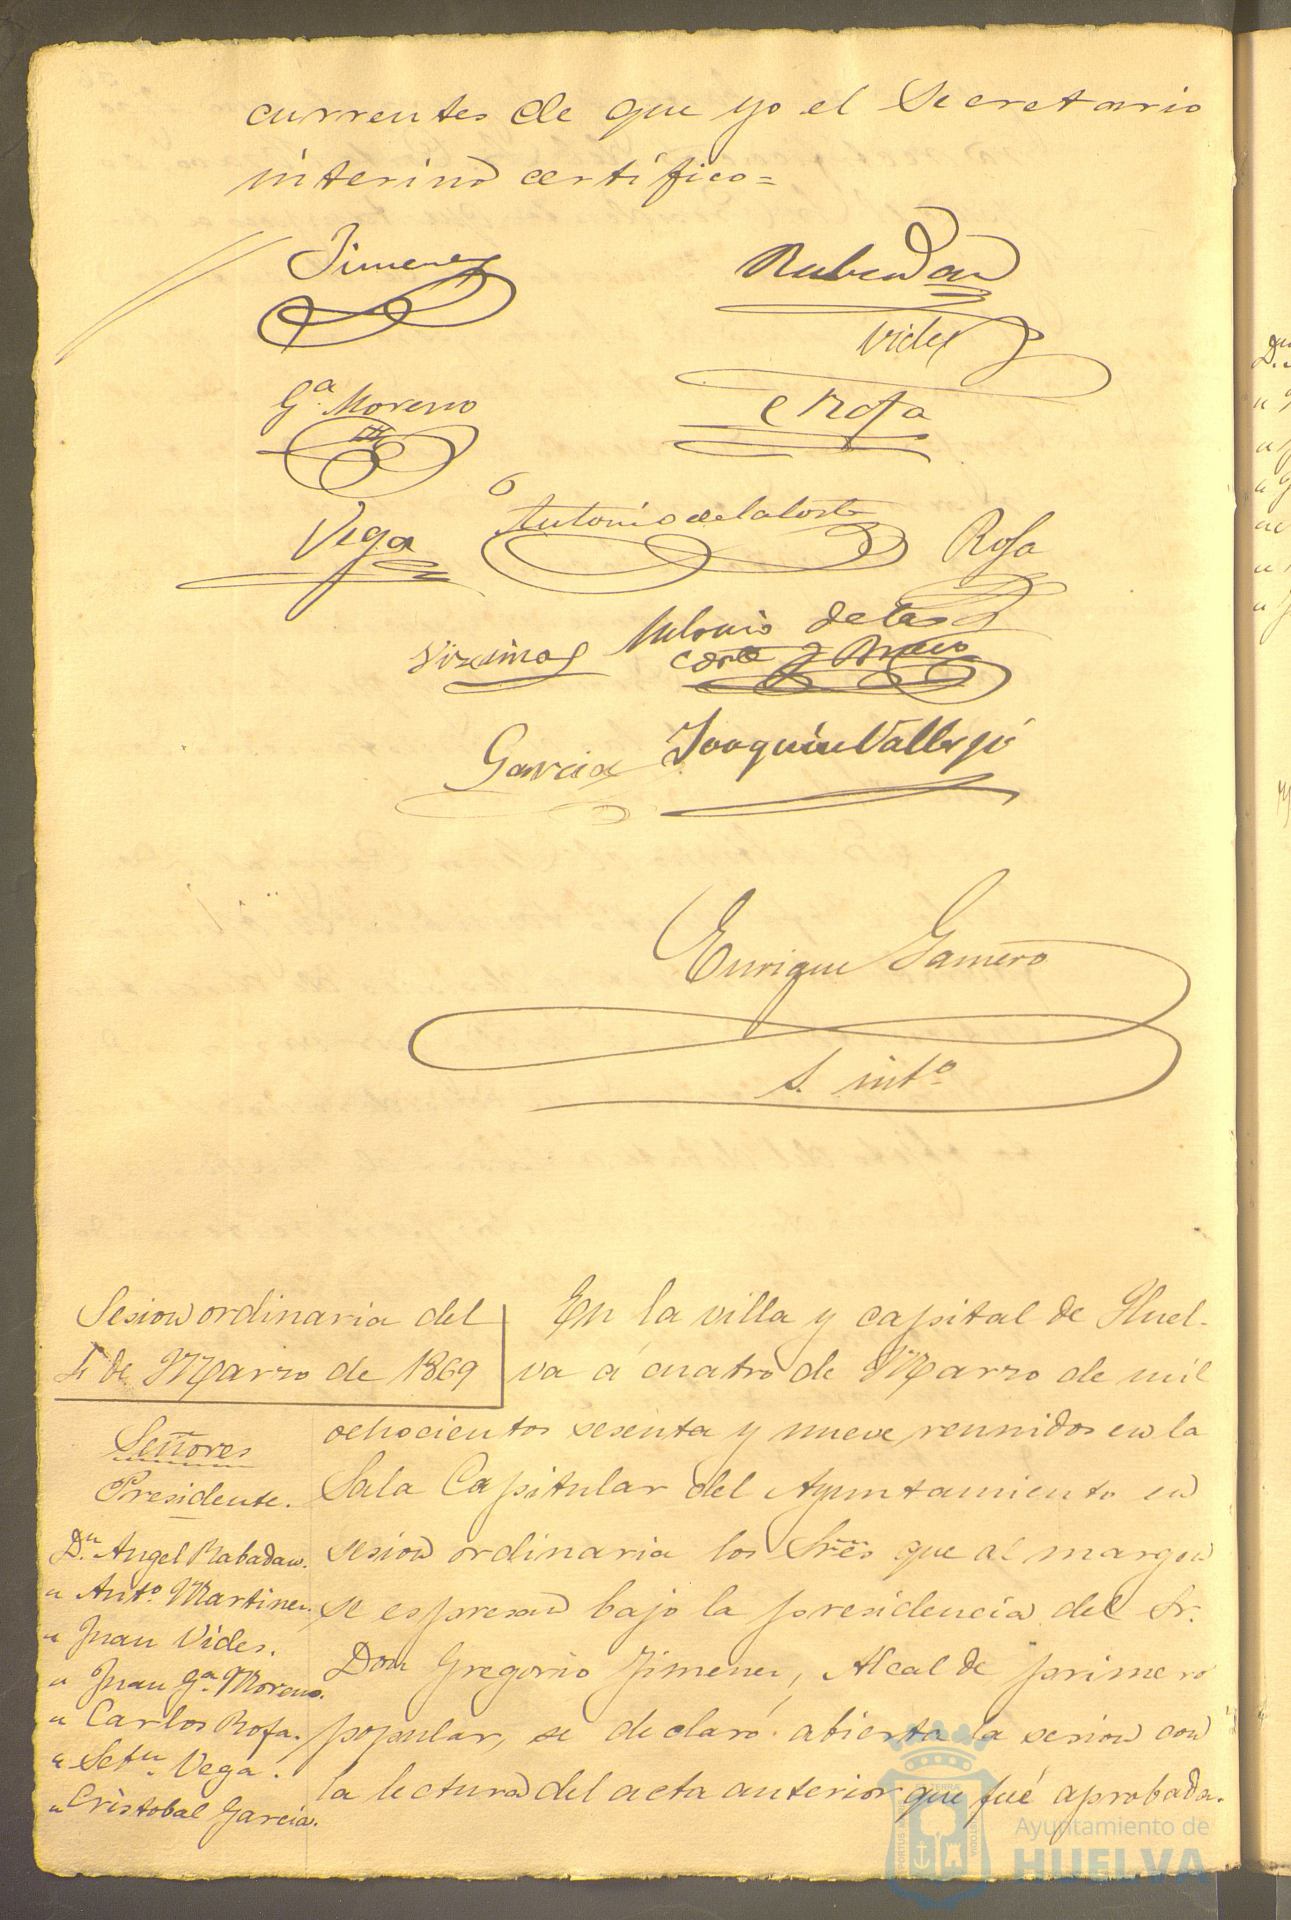 currentes de que yo el Secretario
interino certifico=
Jimenez
Rabadan
Vides
Gª Moreno
C Rofa
Vega
Antonio de la Corte
Rofa
Antonio de la
Corte y Bravo
Garcia
Joaquin Vallejo
Enrique Gamero
S. intº
Sesion ordinaria del
4 de Marzo de 1869
Señores
Presidente.
Dn. Angel Rabadan.
" Antº. Martinez.
" Juan Vides.
" Juan Gª. Moreno.
" Carlos Rofa.
" Setn. Vega.
" Cristobal Garcia.
En la villa y capital de Huel-
va á cuatro de Marzo de mil
ochocientos sesenta y nueve reunidos en la
Sala Capitular del Ayuntamiento en
sesion ordinaria los Sres que al margen
se espresan bajo la presidencia del Sr.
Don Gregorio Jimenez, Alcalde primero
popular, se declaró abierta la sesion con
la lectura del acta anterior que fué aprobada.
Ayuntamiento de
HUELVA